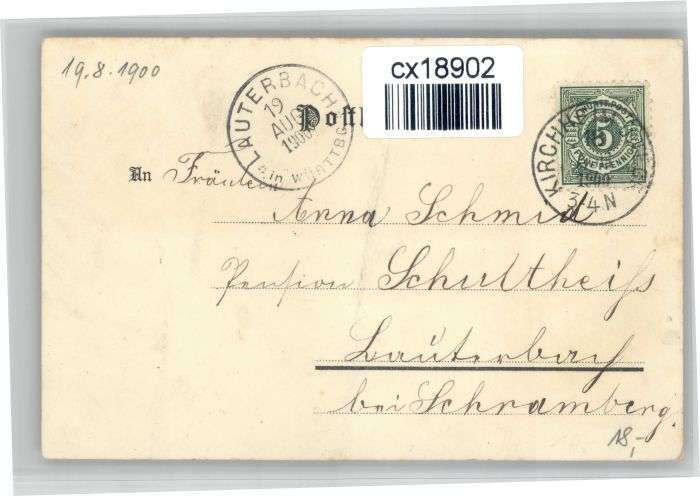 19.8.1900
cx18902
LAUTERBACH
19
AUG
1900
in WÜRTTBG
KIRCH
5
1900
3/4 N
An Fräulein
Anna Schmid
Pension Schultheiss
Lauterbach
bei Schramberg
18,-